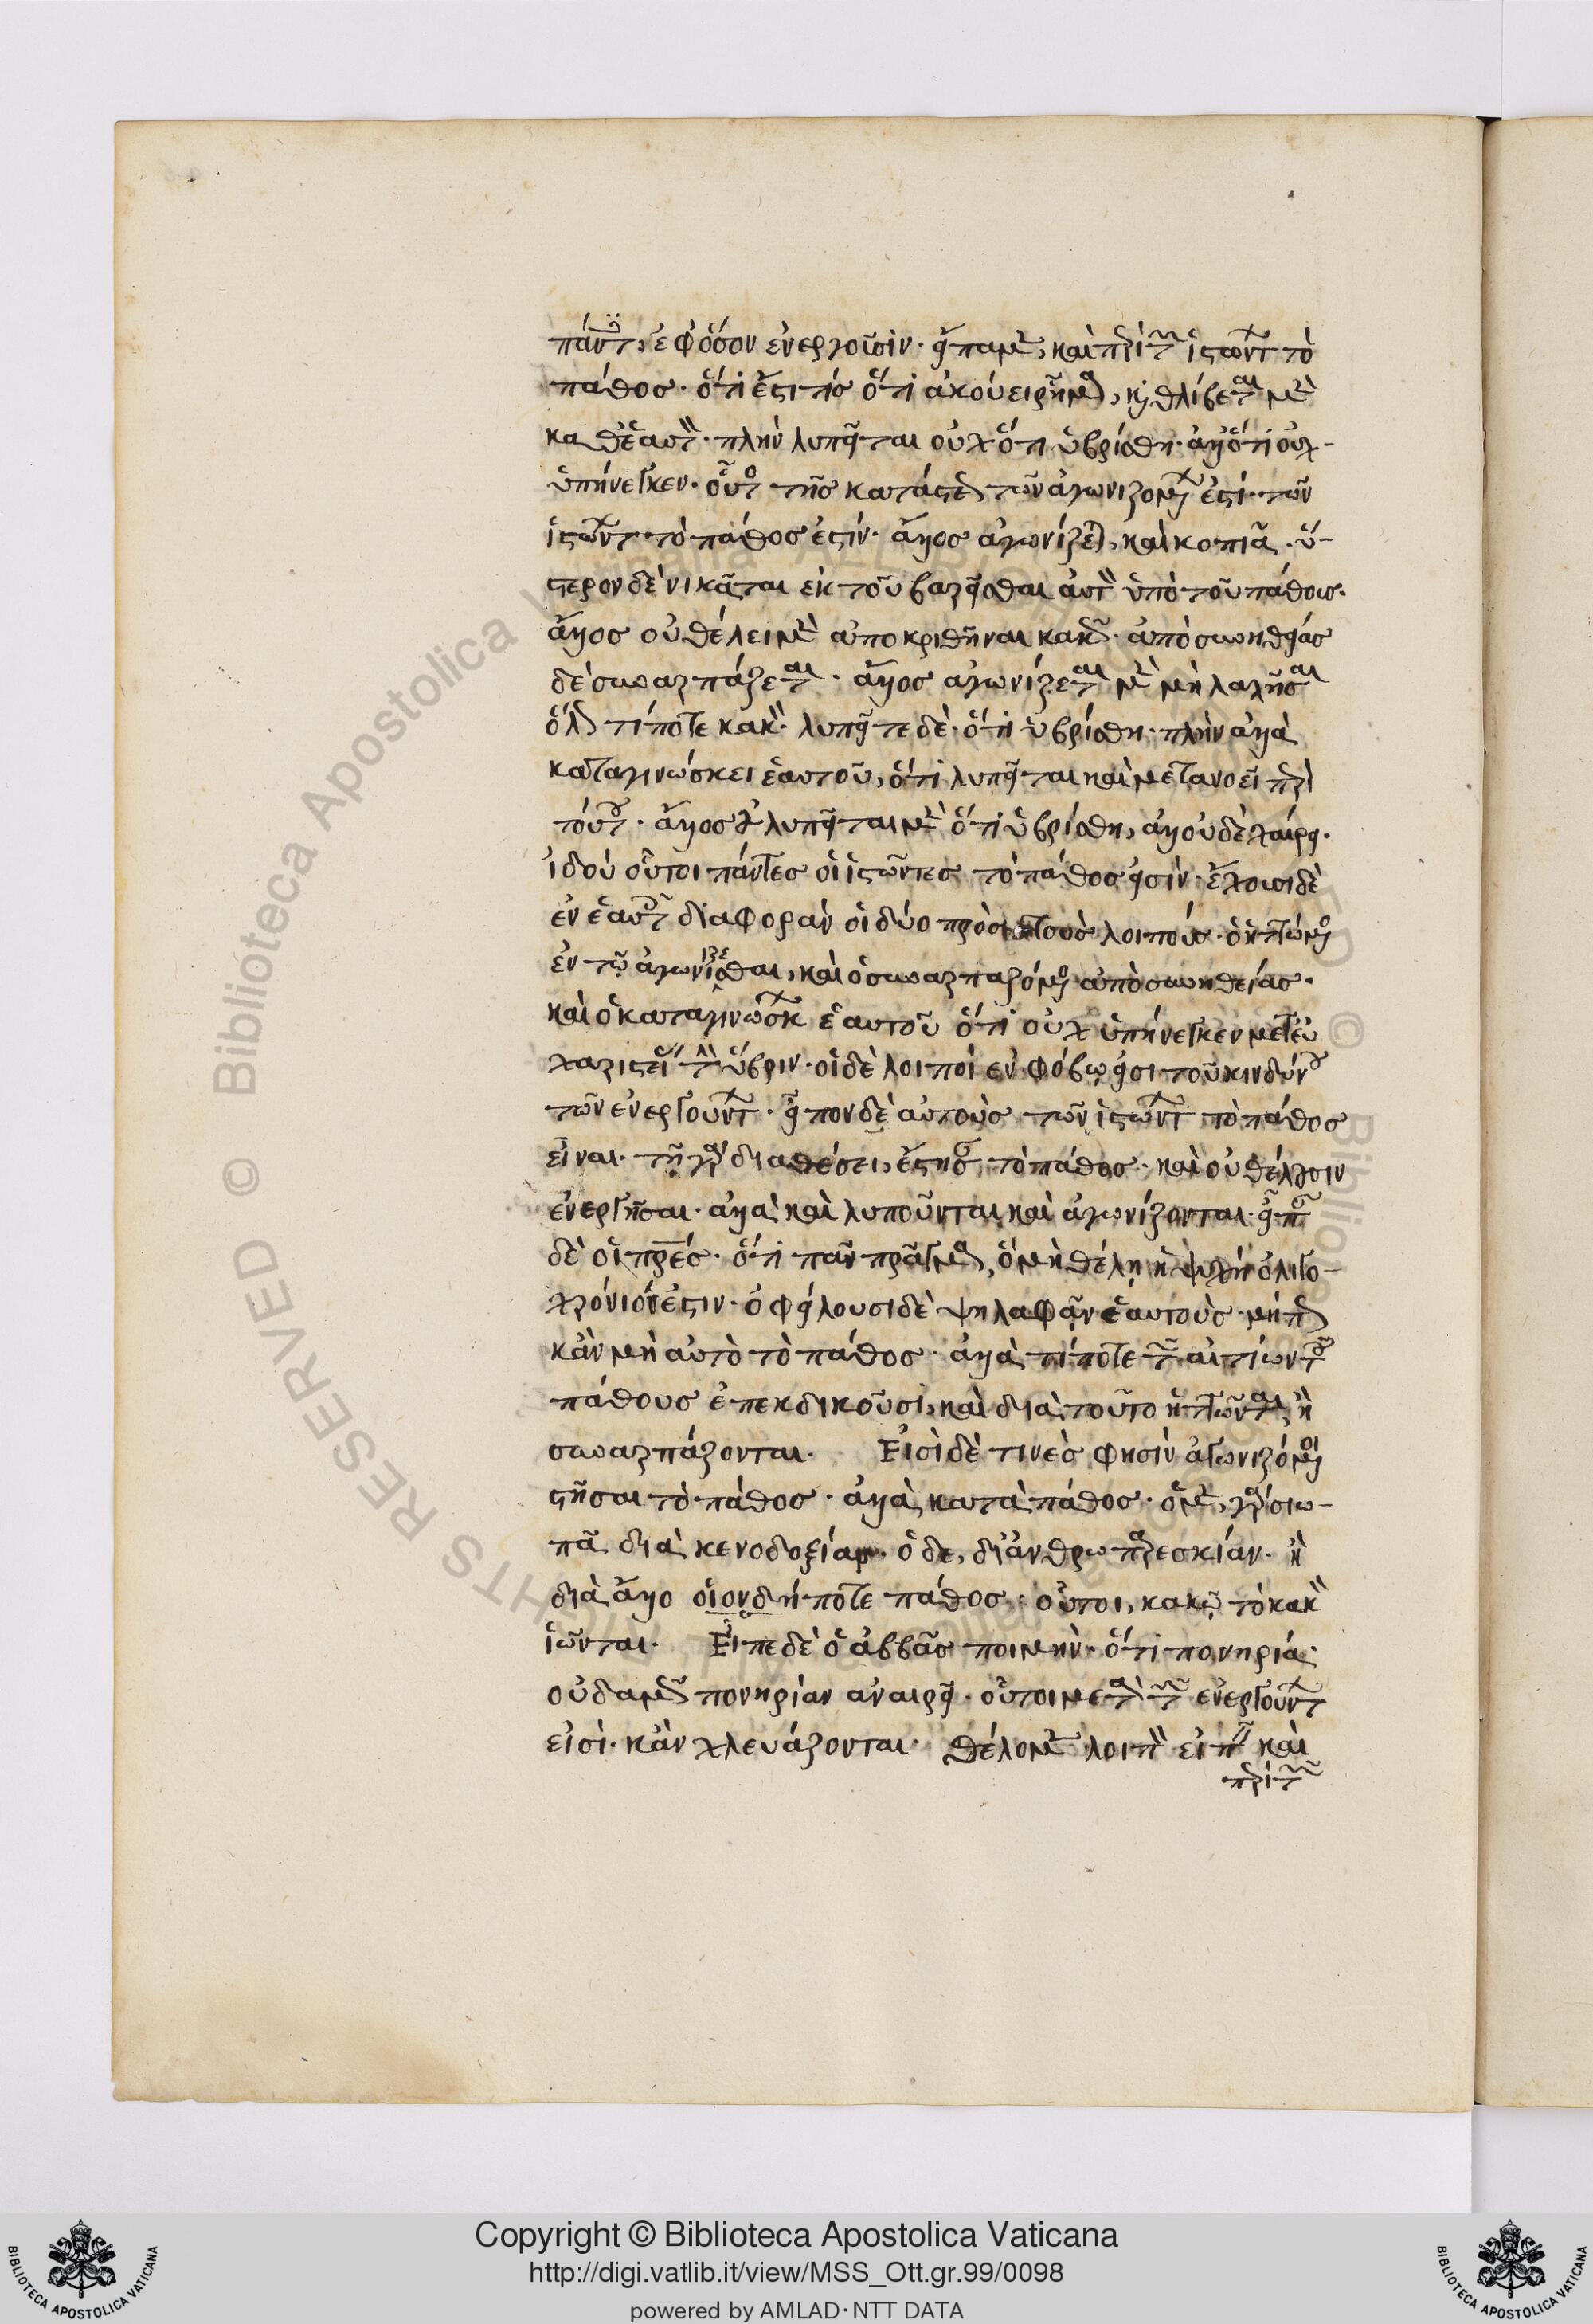 πάντως, ἐφόσον ἐνεργοῦσιν. εἴπαμεν, καὶ περὶ τῶν ἱστώντων τὸ
πάθος. ὅτι ἔστι τίς ὅτι ἀκούει ῥῆμα, καὶ θλίβεται μὲν
καθ' ἑαυτὸν. πλὴν λυπεῖται οὐχ ὅτι ὑβρίσθη. ἀλλ' ὅτι οὐχ
ὑπήνεγκεν. οὗτος τῆς καταστάσεως τῶν ἀγωνιζομένων ἐστί. τῶν
ἱστώντων τὸ πάθος ἐστίν. ἄλλος ἀγωνίζεται, καὶ κοπιᾷ. ὕ-
στερον δὲ νικᾶται ἐκ τοῦ βαρεῖσθαι αὐτὸν ὑπὸ τοῦ πάθους.
ἄλλος οὐ θέλει μὲν ἀποκριθῆναι κακῶς. ἀπὸ συνηθείας
δὲ συναρπάζεται. ἄλλος ἀγωνίζεται μὲν μὴ λαλῆσαι
ὅλως τίποτε κακὸν. λυπεῖτε δὲ. ὅτι ὑβρίσθη. πλὴν ἀλλὰ
καταγινώσκει ἑαυτοῦ, ὅτι λυπεῖται καὶ μετανοεῖ περὶ
τούτου. ἄλλος οὐ λυπεῖται μὲν ὅτι ὑβρίσθη, ἀλλ' οὐδὲ χαίρει.
ἰδοὺ οὗτοι πάντες οἱ ἱστῶντες τὸ πάθος εἰσίν. ἔχουσι δὲ
ἐν ἑαυτοῖς διαφορὰν οἱ δύο πρὸς τοὺς λοιπούς. ὁ ἡττώμενος
ἐν τῷ ἀγωνίζεσθαι, καὶ ὁ συναρπαζόμενος ἀπὸ συνηθείας.
καὶ ὁ καταγινώσκων ἑαυτοῦ ὅτι οὐχ ὑπήνεγκεν μετ' εὐ
χαριστείας τὴν ὕβριν. οἱ δὲ λοιποὶ ἐν φόβῳ εἰσι τοῦ κινδύνου
τῶν ἐνεργούντων. εἶπον δὲ αὐτοὺς τῶν ἱστώντων τὸ πάθος
εἶναι. τῇ γὰρ διαθέσει, ἔστησαν τὸ πάθος. καὶ οὐ θέλουσιν
ἐνεργῆσαι. ἀλλὰ καὶ λυποῦνται, καὶ ἀγωνίζονται. εἶπον
δὲ οἱ πρες. ὅτι πᾶν πρᾶγμα, ὃ μὴ θέλῃ ἡ ψυχὴ ὀλιγο-
χρόνιόν ἐστιν. ὀφείλουσι δὲ ψηλαφᾶν ἑαυτοὺς. μήπως
κἂν μὴ αὐτὸ τὸ πάθος. ἀλλὰ τίποτε τῶν αἰτίων τοῦ
πάθους ἐπεκδικοῦσι, καὶ διὰ τοῦτο ἡττῶνται, ἢ
συναρπάζονται. Εἰσὶ δὲ τινὲς φησὶν ἀγωνιζόμενοι
στῆσαι τὸ πάθος. ἀλλὰ κατὰ πάθος. ὁ μὲν, γὰρ σιω-
πᾷ διὰ κενοδοξίαν. ὁ δε, δι' ἀνθρωπαρεσκίαν. ἢ
διὰ ἄλλο οἱονδήποτε πάθος. οὗτοι, κακῷ τὸ κακὸν
ἰῶνται. Εἶπε δὲ ὁ ἀββᾶς ποιμὴν. ὅτι πονηρία
οὐδαμῶς πονηρίαν ἀναιρεῖ. οὗτοι μετὰ τῶν ἐνεργούντων
εἰσί. κἂν χλευάζονται. θέλομεν λοιπὸν εἰπεῖν καὶ
περὶ τῶν